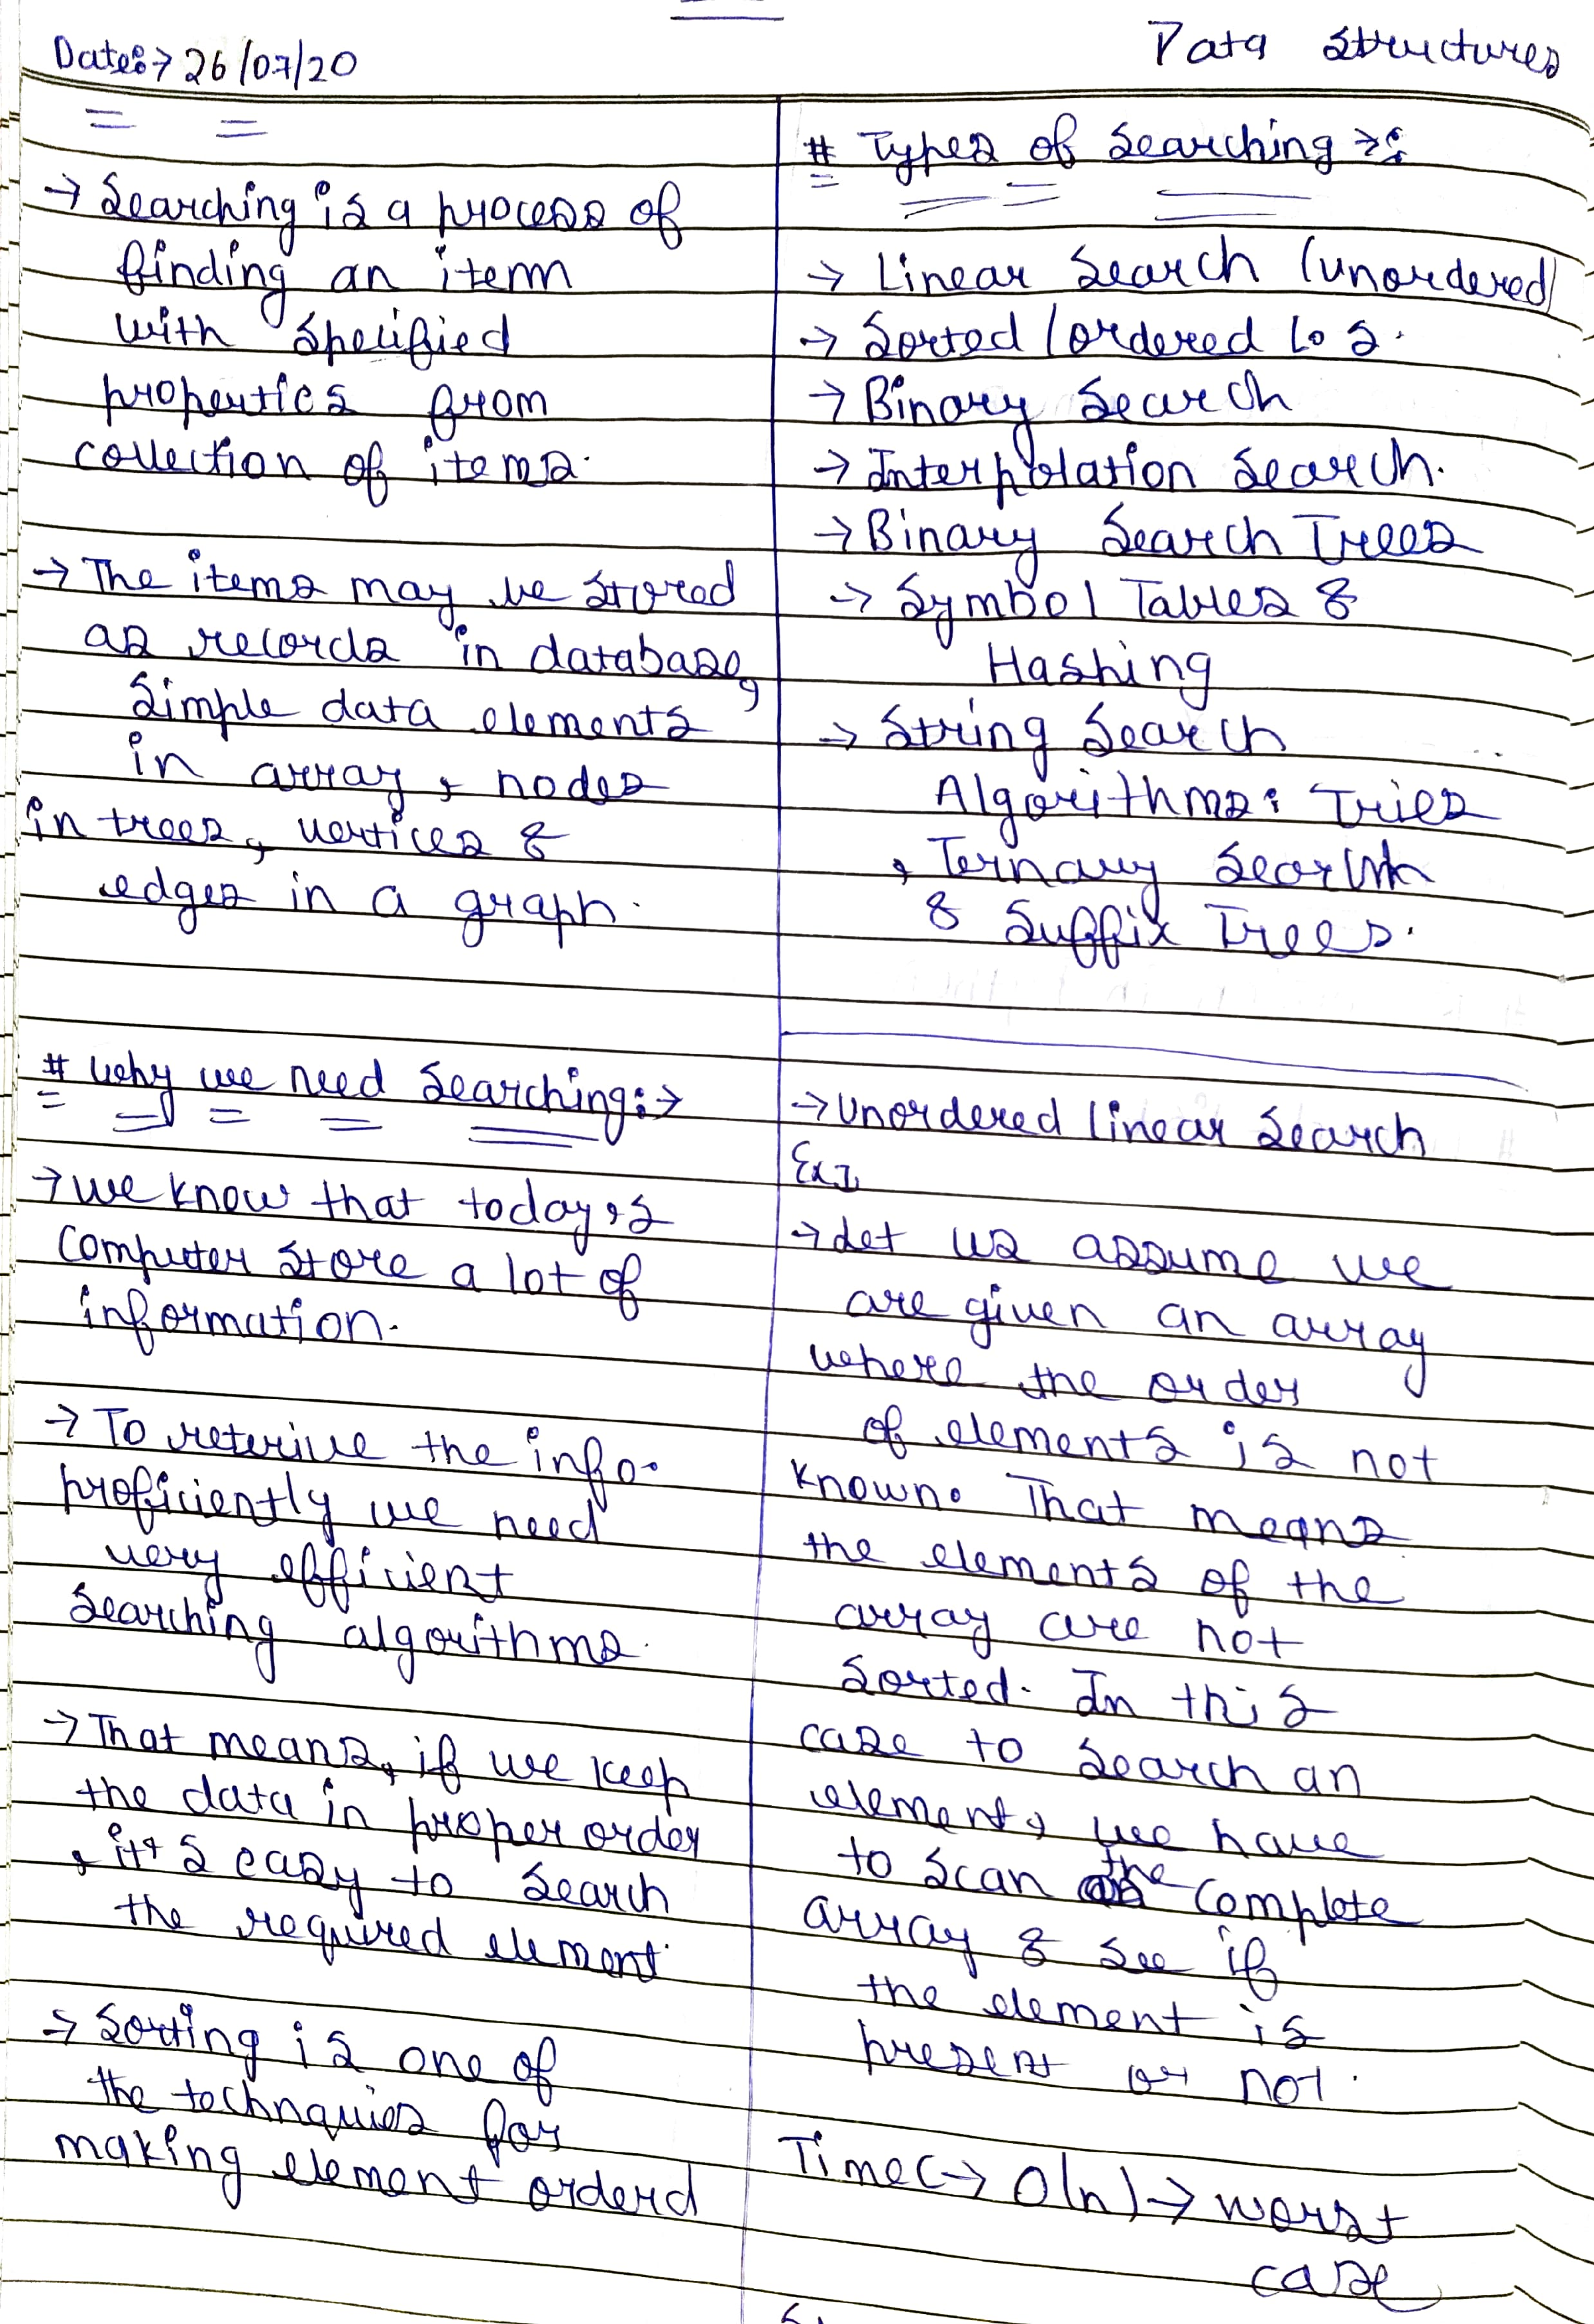 Date:→ 26/07/20
Data Structures
→ Searching is a process of
finding an item
with specified
properties from
collection of items.
→ The items may be stored
as records in database,
simple data elements
in array, nodes
in trees, vertices &
edges in a graph.
# Why we need Searching:→
→ we know that today's
computer store a lot of
information.
→ To reterive the info.
proficiently we need
very efficient
searching algorithms.
→ That means, if we keep
the data in proper order
, it's easy to search
the required element.
→ Sorting is one of
the technquies for
making element orderd
# Types of Searching →:
→ Linear Search (unordered)
→ Sorted / ordered L.S.
→ Binary Search
→ Interpolation Search.
→ Binary Search Trees
→ Symbol Tables &
Hashing
→ String Search
Algorithms: Tries
, Ternary Search
& Suffix Trees.
→ Unordered linear Search
→ Let us assume we
are given an array
where the order
of elements is not
known. That means
the elements of the
array are not
sorted. In this
case to search an
element, we have
to scan the complete
array & see if
the element is
present or not.
Time C → O(n) → worst
case